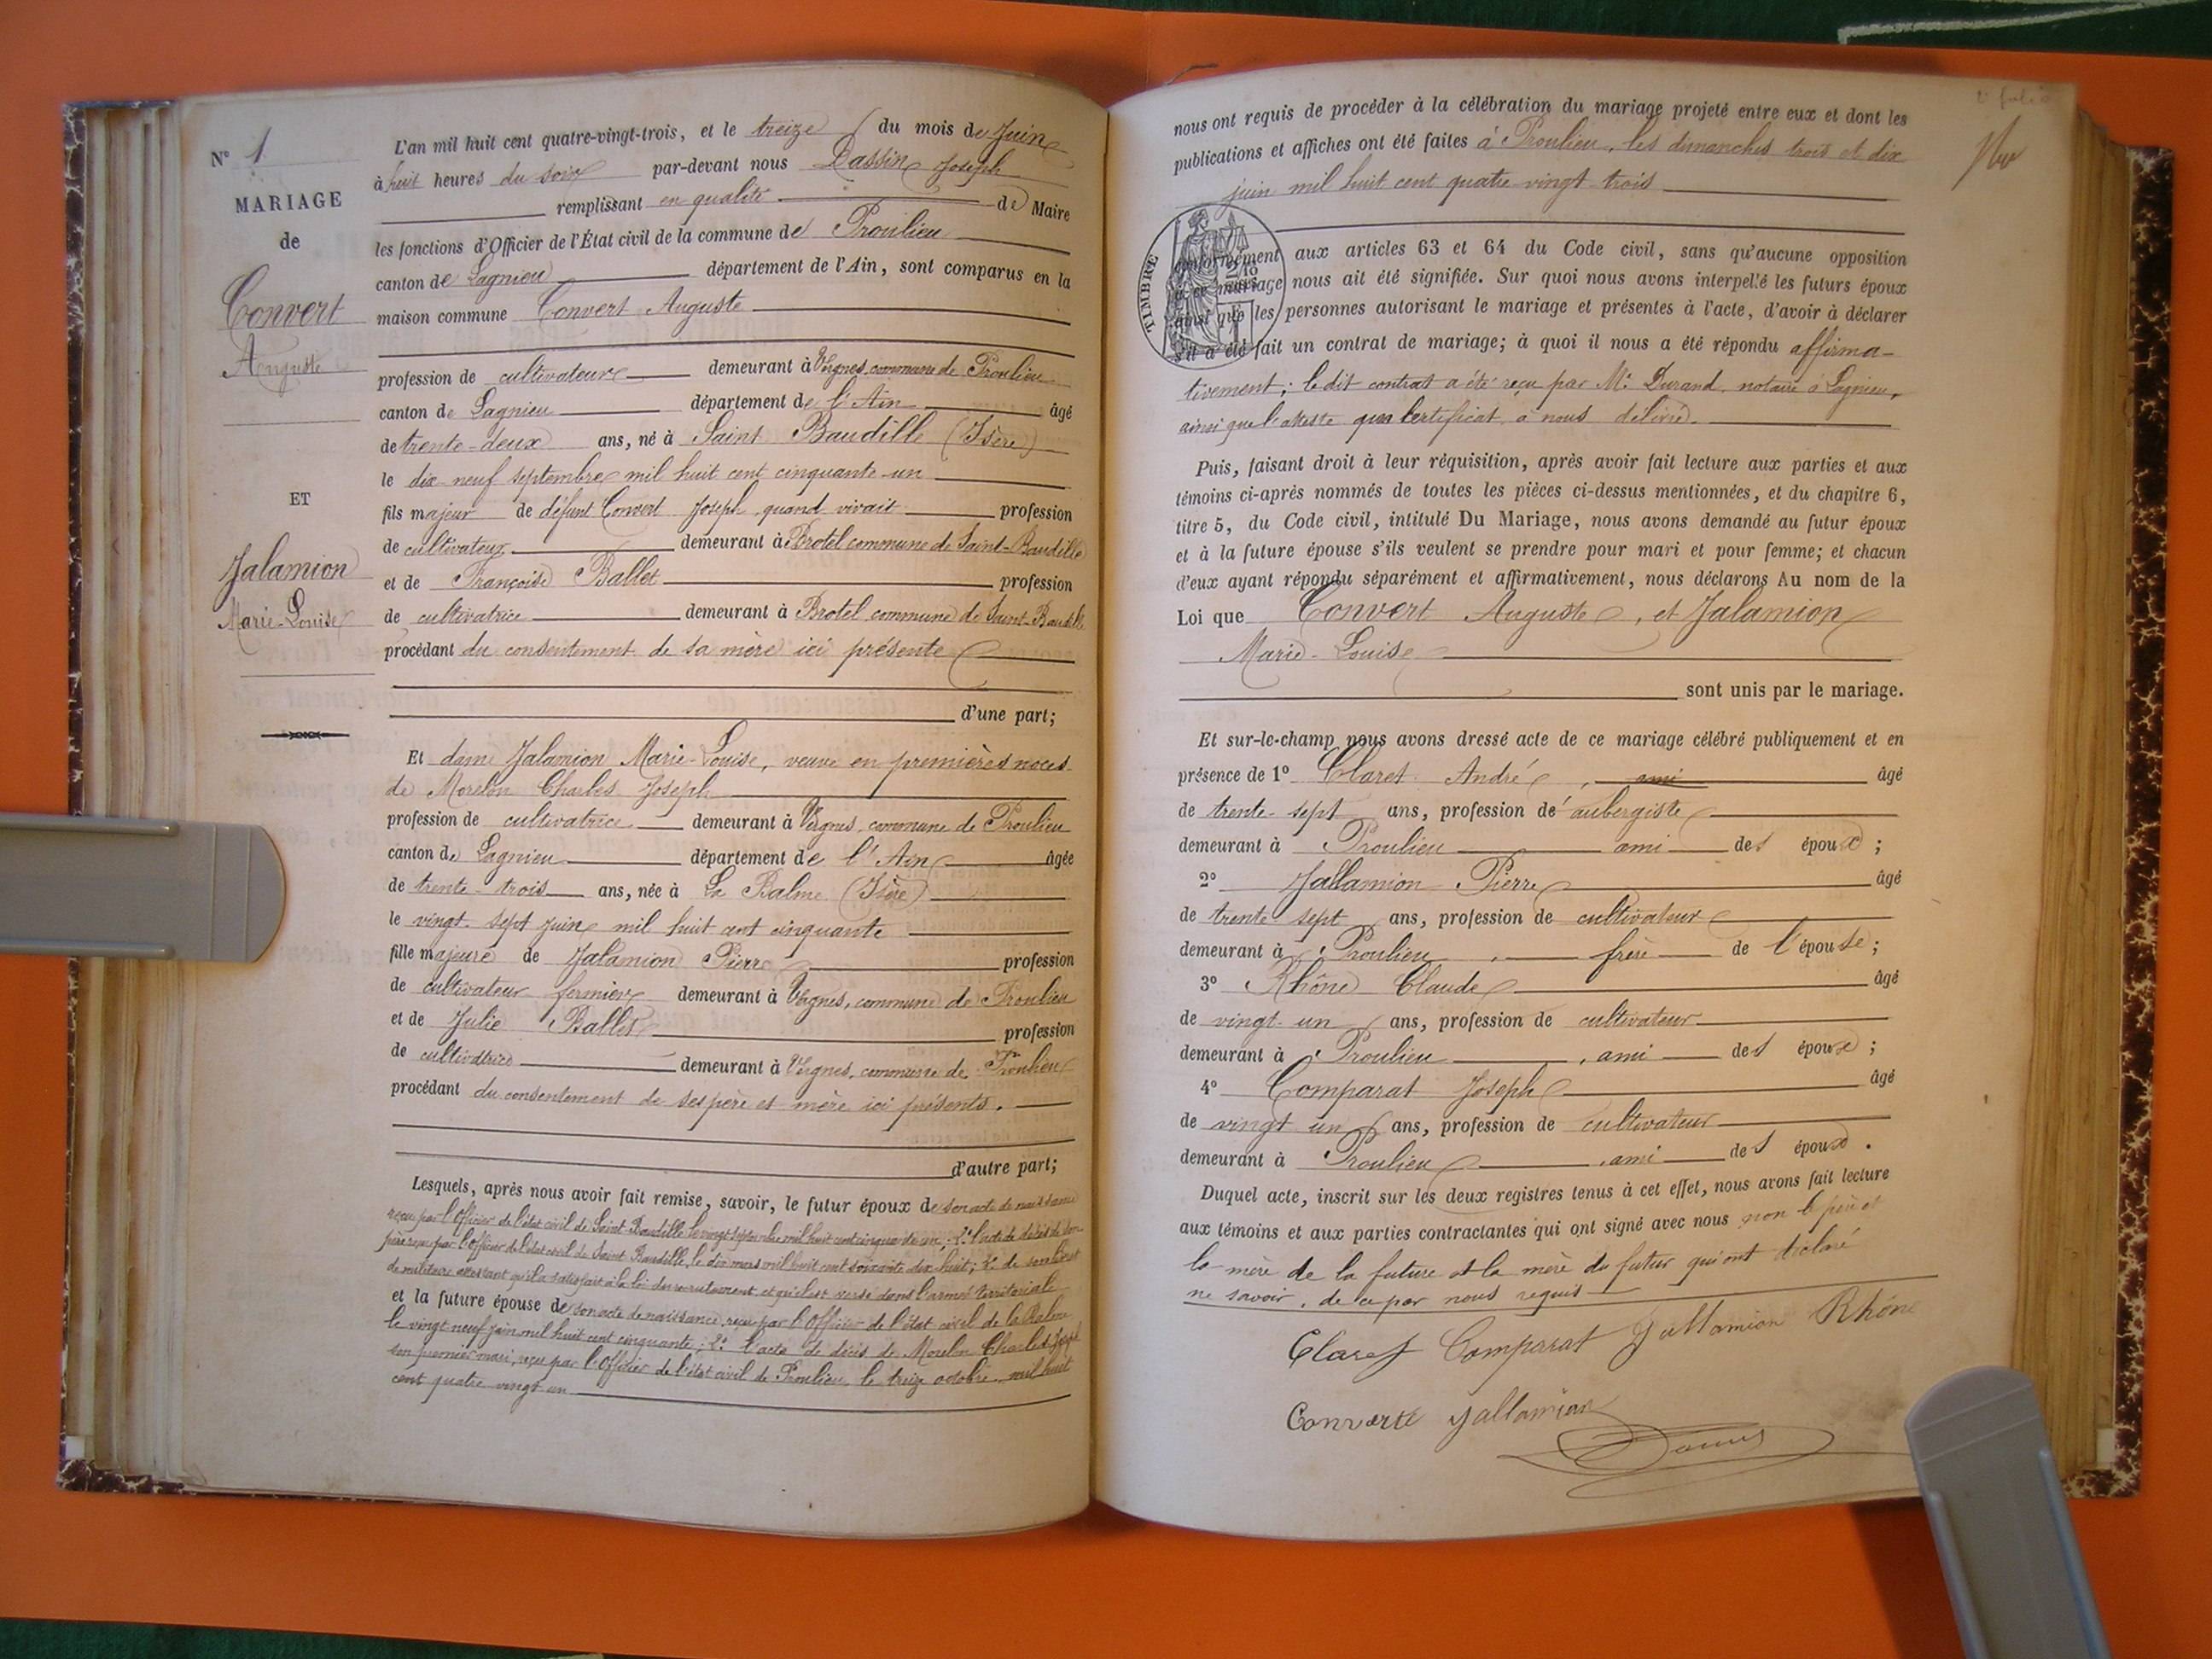 N° 1
MARIAGE
de
Convert
Auguste
ET
Jalamion
Marie-Louise
L'an mil huit cent quatre-vingt-trois, et le treize du mois de Juin
à huit heures du soir par-devant nous Dassin Joseph
remplissant en qualité de Maire
les fonctions d'Officier de l'État civil de la commune de Proulieu
canton de Lagnieu département de l'Ain, sont comparus en la
maison commune Convert Auguste
profession de cultivateur demeurant à Vergnes, commune de Proulieu
canton de Lagnieu département de l'Ain âgé
de trente-deux ans, né à Saint Baudille (Isère)
le dix neuf septembre mil huit cent cinquante-un
fils majeur de défunt Convert Joseph, quand vivait profession
de cultivateur demeurant à Brotel commune de Saint-Baudille
et de Françoise Ballet profession
de cultivatrice demeurant à Brotel, commune de Saint-Baudille
procédant du consentement de sa mère ici présente
d'une part;
Et dame Jalamion Marie-Louise, veuve en premières noces
de Morelon Charles Joseph
profession de cultivatrice demeurant à Vergnes, commune de Proulieu
canton de Lagnieu département de l'Ain âgée
de trente-trois ans, née à La Balme (Isère)
le vingt-sept juin mil huit cent cinquante
fille majeure de Jalamion Pierre profession
de cultivateur fermier demeurant à Vergnes, commune de Proulieu
et de Julie Ballet profession
de cultivatrice demeurant à Vergnes, commune de Proulieu
procédant du consentement de ses père et mère ici présents.
d'autre part;
Lesquels, après nous avoir fait remise, savoir, le futur époux de son acte de naissance
reçu par l'Officier de l'état civil de Saint-Baudille le vingt septembre mil huit cent cinquante un; 2° l'acte de décès de son
père reçu par l'officier de l'état civil de Saint Baudille, le dix mars mil huit cent soixante dix huit; 2° de son livret
de militaire attestant qu'il a satisfait à la loi du recrutement et qu'il est versé dans l'armée territoriale
et la future épouse de son acte de naissance, reçu par l'Officier de l'état civil de la Balme
le vingt neuf juin mil huit cent cinquante; 2° l'acte de décès de Morelon Charles Joseph
son premier mari, reçu par l'Officier de l'état civil de Proulieu, le treize octobre mil huit
cent quatre vingt un
nous ont requis de procéder à la célébration du mariage projeté entre eux et dont les
publications et affiches ont été faites à Proulieu, les dimanches trois et dix
juin mil huit cent quatre-vingt-trois
TIMBRE
conformément aux articles 63 et 64 du Code civil, sans qu'aucune opposition
à ce mariage nous ait été signifiée. Sur quoi nous avons interpellé les futurs époux
ainsi que les personnes autorisant le mariage et présentes à l'acte, d'avoir à déclarer
s'il a été fait un contrat de mariage; à quoi il nous a été répondu affirma-
tivement; le dit contrat a été reçu par Me Durand, notaire à Lagnieu,
ainsi que l'atteste un certificat à nous délivré.
Puis, faisant droit à leur réquisition, après avoir fait lecture aux parties et aux
témoins ci-après nommés de toutes les pièces ci-dessus mentionnées, et du chapitre 6,
titre 5, du Code civil, intitulé Du Mariage, nous avons demandé au futur époux
et à la future épouse s'ils veulent se prendre pour mari et pour femme; et chacun
d'eux ayant répondu séparément et affirmativement, nous déclarons Au nom de la
Loi que Convert Auguste, et Jalamion
Marie-Louise
sont unis par le mariage.
Et sur-le-champ nous avons dressé acte de ce mariage célébré publiquement et en
présence de 1° Claret André, ami âgé
de trente-sept ans, profession d'aubergiste
demeurant à Proulieu ami des époux;
2° Jallamion Pierre âgé
de trente-sept ans, profession de cultivateur
demeurant à Proulieu, frère de l'épouse;
3° Rhône Claude âgé
de vingt-un ans, profession de cultivateur
demeurant à Proulieu, ami des époux;
4° Comparat Joseph âgé
de vingt un ans, profession de cultivateur
demeurant à Proulieu, ami des époux.
Duquel acte, inscrit sur les deux registres tenus à cet effet, nous avons fait lecture
aux témoins et aux parties contractantes qui ont signé avec nous non le père et
la mère de la future et la mère du futur qui ont déclaré
ne savoir, de ce par nous requis
Claret Comparat Jallamion Rhône
Converte Jallamion